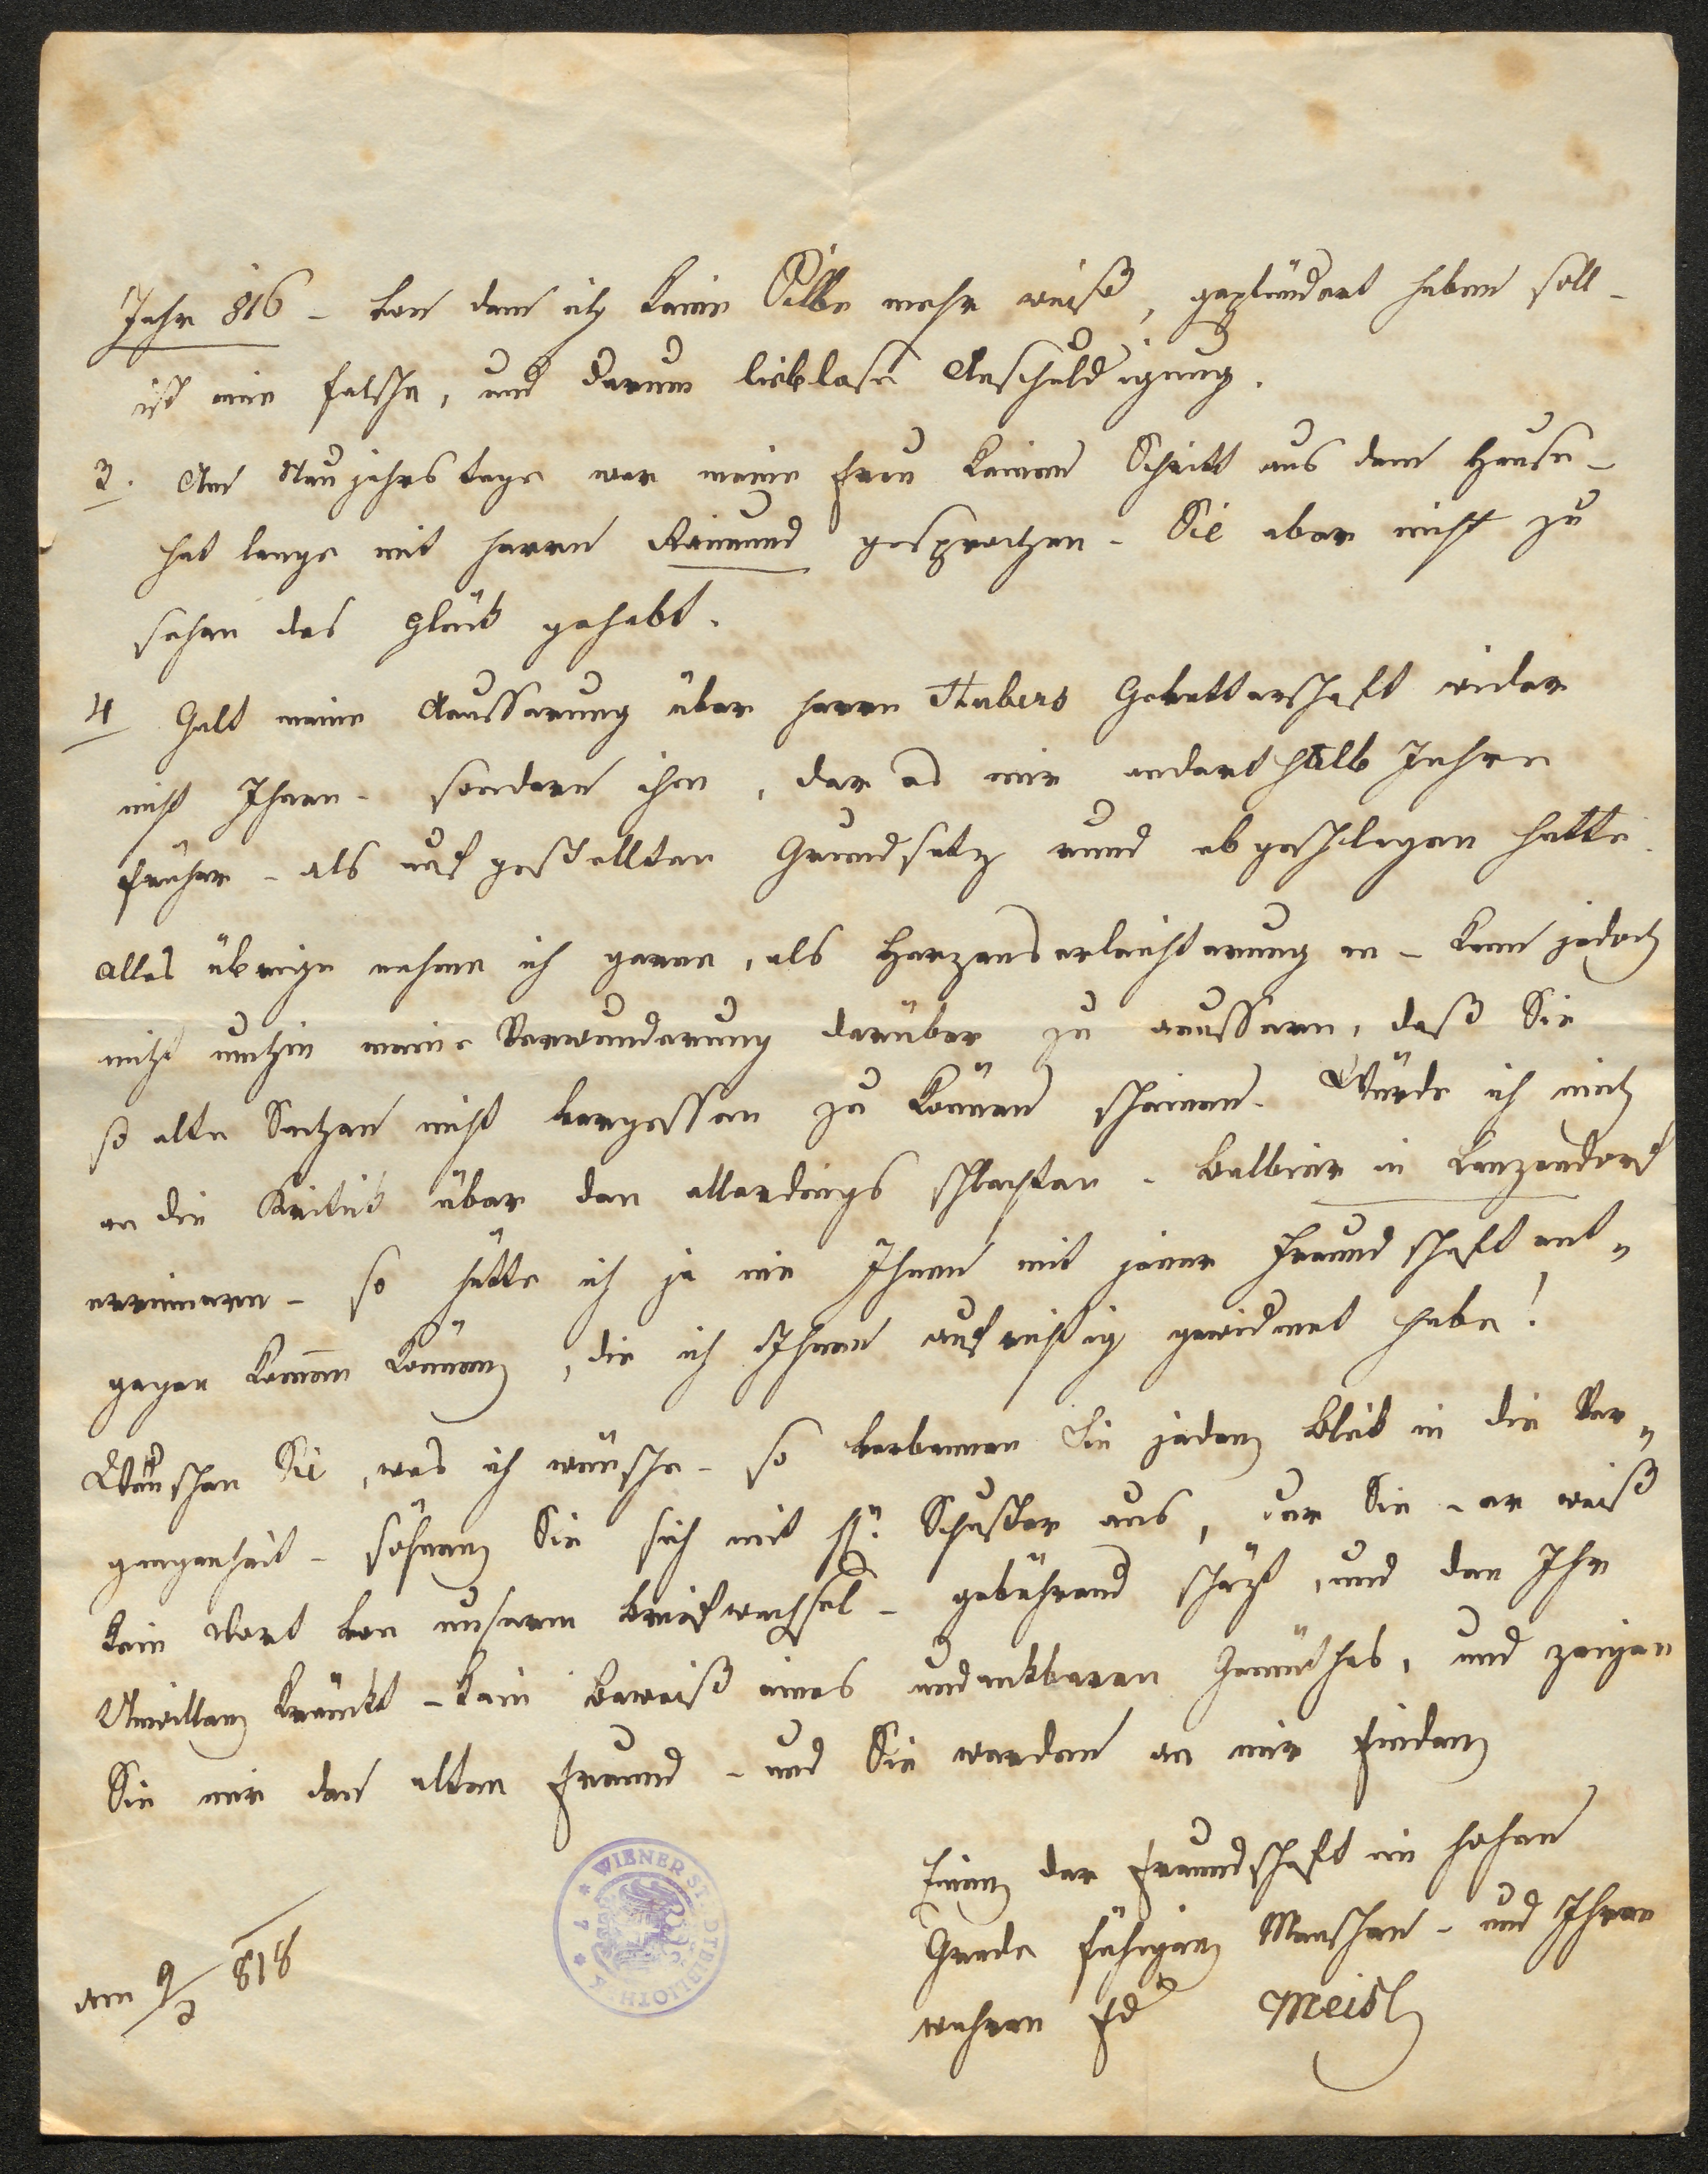 Jahr 816 – von dem ich keine Silbe mehr weiß, geplündert haben soll –
ist eine falsche, und darum lieblose Anschuldigung.
3. Am Neujahrstage war meine Frau keinen Schritt aus dem Hause –
hat lange mit Herrn Raimund gesprochen – Sie aber nicht zu
sehen das Glück gehabt.
4 Galt meine Aeusserung über Herrn Hubers Gevatterschaft wider
nicht Ihnen – sondern ihm, der es mir anderthalb Jahre
früher – als aufgestellten Grundsatz rund abgeschlagen hatte.
Alles übrige nehme ich gerne, als Herzenserleichterung an – kann jedoch
nicht umhin meine Verwunderung darüber zu aeussern, daß Sie
so alte Sachen nicht vergessen zu können scheinen. Würde ich mich
an die Kritik über den allerdings schlechten – Balbier in Lanzendorf
errinnern – so hätte ich ja nie Ihnen mit jener Freundschaft ent„
gegen kommen können, die ich Ihnen aufrichtig gewidmet habe!
Wünschen Sie, was ich wünsche – so verbannen Sie jeden Blick in die Ver„
gangenheit – söhnen Sie sich mit H. Schuster aus, der Sie – er weiß
kein Wort von unserm Briefwechsel – gebührend schäzt, und den Ihr
Unwillen kränkt – kein Beweiß eines undankbaren Gemüthes, und zeigen
Sie mir den alten Freund – und Sie werden an mir finden
Einen der Freundschaft im hohen
Grade fähigen Menschen – und Ihren
wahren Fd Meisl
am 9/2 818
WIENER STADTBIBLIOTHEK
7